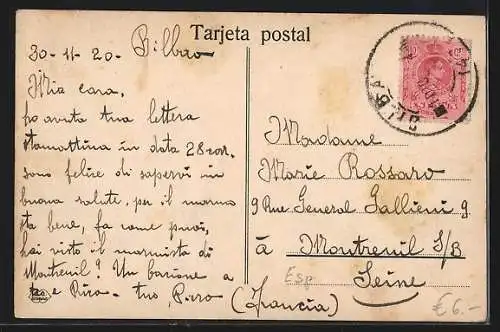 Tarjeta postal
30-11-20 Bilbao
Mia cara,
ho avuta tua lettera
stamattina in data 28 cor.
sono felice di sapervi in
buona salute, per il marmo
sta bene, fa come puoi,
hai visto il marmista di
Montreuil? Un bacione a
te e Rira - tuo
Madame
Marie Rossaro
9 Rue General Gallieni 9
à Montreuil S/B
Seine
(Francia)
Esp
€6.-